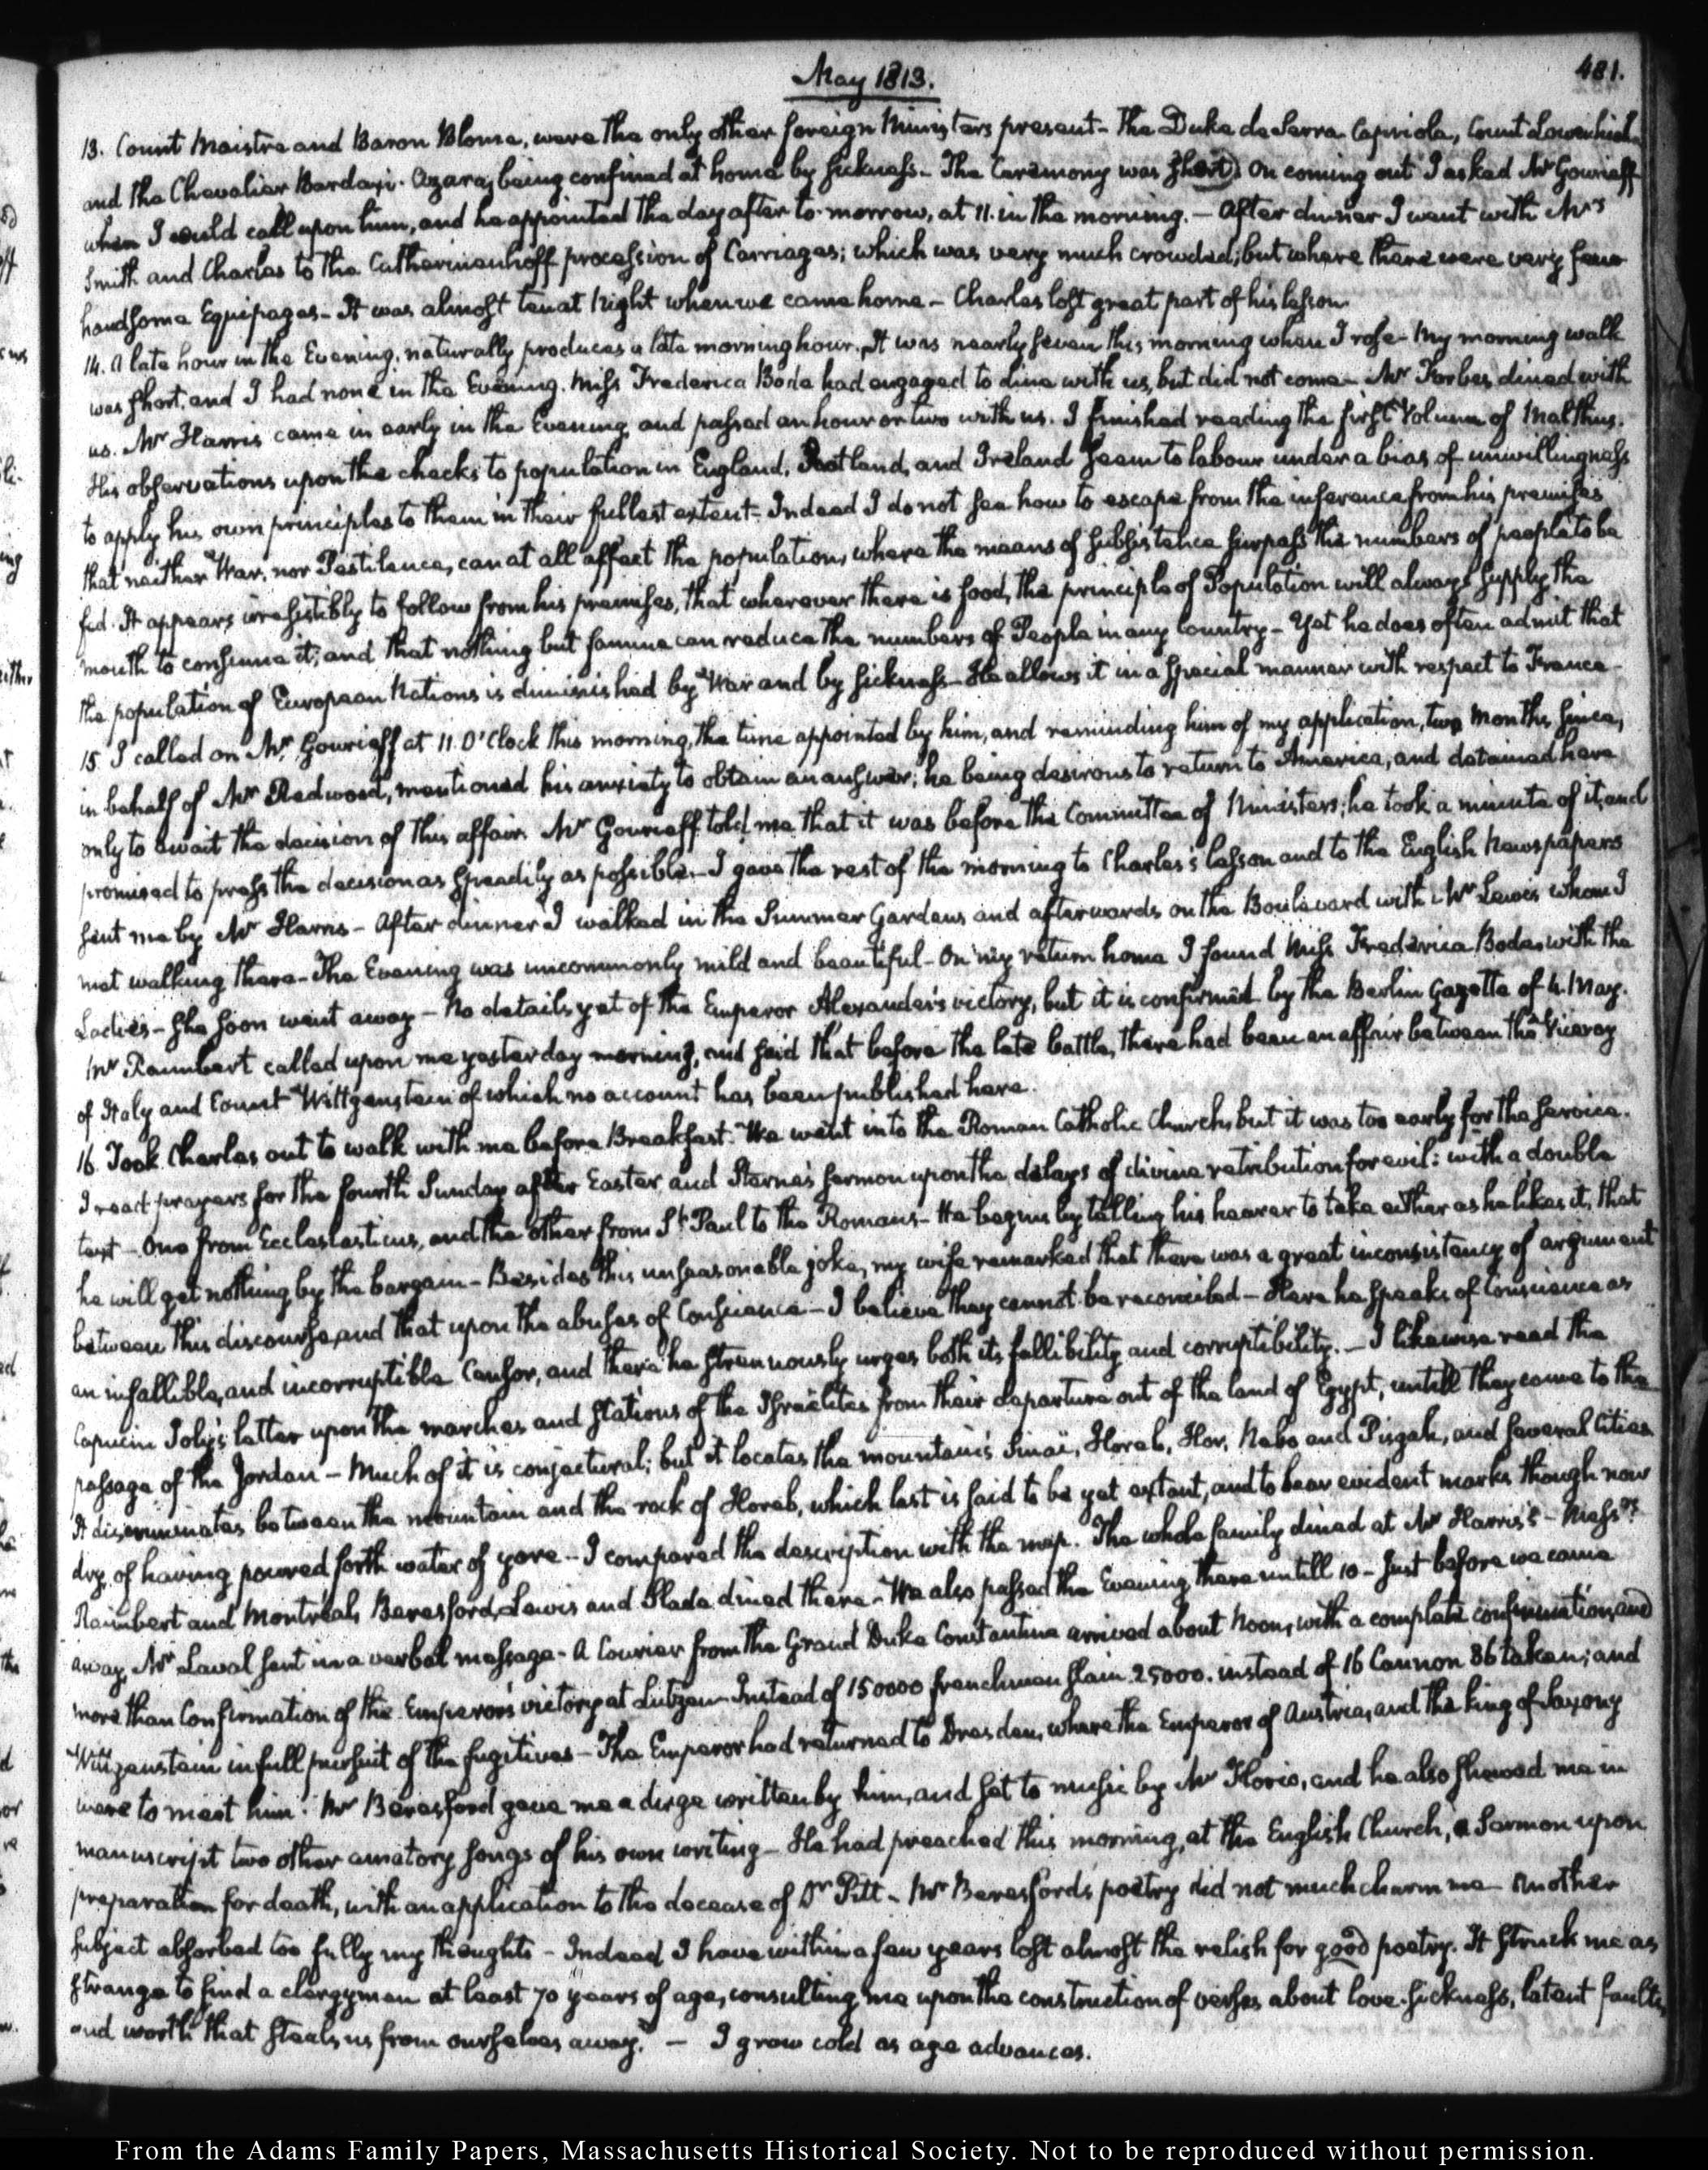 May 1813.
481.
13. Count Maistre and Baron Blome, were the only other foreign Ministers present - The Duke de Serra Capriola, Count Lowenhielm
and the Chevalier Bardaxi. Azara, being confined at home by sickness - The Ceremony was short. On coming out I asked Mr Gourieff
when I could call upon him, and he appointed the day after to-morrow, at 11. in the morning. - After dinner I went with Mrs
Smith and Charles to the Catherinenhoff procession of Carriages; which was very much crowded; but where there were very few
handsome Equipages - It was almost ten at Night when we came home - Charles lost great part of his lesson.
14. A late hour in the Evening, naturally produces a late morning hour. It was nearly seven this morning when I rose - My morning walk
was short, and I had none in the Evening. Miss Frederica Bode had engaged to dine with us, but did not come - Mr Forbes dined with
us. Mr Harris came in early in the Evening, and passed an hour or two with us. I finished reading the first Volume of Malthus.
His observations upon the checks to population in England, Scotland, and Ireland seem to labour under a bias of unwillingness
to apply his own principles to them in their fullest extent - Indeed I do not see how to escape from the inference from his premises
that neither War, nor Pestilence, can at all affect the population, where the means of subsistence surpass the numbers of people to be
fed. It appears irresistibly to follow from his premises, that wherever there is food, the principle of Population will always supply the
mouth to consume it; and that nothing but famine can reduce the numbers of People in any Country - Yet he does often admit that
the population of European Nations is diminished by War and by sickness - He allows it in a special manner with respect to France -
15. I called on Mr. Gourieff at 11. O'Clock this morning, the time appointed by him, and reminding him of my application, two Months since,
in behalf of Mr Redwood, mentioned his anxiety to obtain an answer; he being desirous to return to America, and detained here
only to await the decision of this affair. Mr Gourieff told me that it was before the Committee of Ministers; he took a minute of it, and
promised to press the decision as speedily as possible. - I gave the rest of the morning to Charles's lesson and to the English Newspapers
sent me by Mr Harris - After dinner I walked in the Summer Gardens and afterwards on the Boulevard with Mr Lewis whom I
met walking there - The Evening was uncommonly mild and beautiful - On my return home I found Miss Frederica Bode with the
Ladies - she soon went away - No details yet of the Emperor Alexander's victory, but it is confirmed by the Berlin Gazette of 4. May.
Mr Raimbert called upon me yesterday morning, and said that before the late battle, there had been an affair between the Viceroy
of Italy and Count Wittgenstein of which no account has been published here.
16. Took Charles out to walk with me before Breakfast. We went into the Roman Catholic Church, but it was too early for the service.
I read prayers for the fourth Sunday after Easter and Sterne's sermon upon the delays of divine retribution for evil: with a double
text - One from Ecclesiasticus, and the other from St. Paul to the Romans - He begins by telling his hearer to take either as he likes it, that
he will get nothing by the bargain - Besides this unseasonable joke, my wife remarked that there was a great inconsistency of argument
between this discourse, and that upon the abuses of Conscience - I believe they cannot be reconciled - Here he speaks of Conscience as
an infallible, and incorruptible Censor, and there he strenuously urges both its fallibility and corruptibility. - I likewise read the
Capucin Joly's letter upon the marches and stations of the Israelites from their departure out of the land of Egypt, untill they came to the
passage of the Jordan - Much of it is conjectural; but it locates the mountains Sinai, Horeb, Hor, Nebo and Pisgah, and several Cities
It discriminates between the mountain and the rock of Horeb, which last is said to be yet extant, and to bear evident marks though now
dry, of having poured forth water of yore - I compared the description with the map. The whole family dined at Mr Harris's - Messrs.
Raimbert and Montréal, Beresford, Lewis and Slade dined there - We also passed the Evening there untill 10 - Just before we came
away, Mr Laval sent in a verbal message - A Courier from the Grand Duke Constantine arrived about Noon, with a complete confirmation, and
more than Confirmation of the Emperor's victory at Lutzen - Instead of 150000 frenchmen slain 25000. instead of 16 Cannon 86 taken; and
Wittgenstein in full pursuit of the fugitives - The Emperor had returned to Dresden, where the Emperor of Austria, and the king of Saxony
were to meet him. Mr Beresford gave me a dirge written by him, and set to music by Mr Florio, and he also shewed me in
manuscript two other amatory songs of his own writing - He had preached this morning, at the English Church, a Sermon upon
preparation for death, with an application to the decease of Dr Pitt - Mr Beresford's poetry did not much charm me - Another
subject absorbed too fully my thoughts - Indeed I have within a few years lost almost the relish for good poetry. It struck me as
strange to find a clergyman at least 70 years of age, consulting me upon the construction of verses about love-sickness, latent faults,
and worth "that steals us from ourselves away." - I grow cold as age advances.
From the Adams Family Papers, Massachusetts Historical Society. Not to be reproduced without permission.